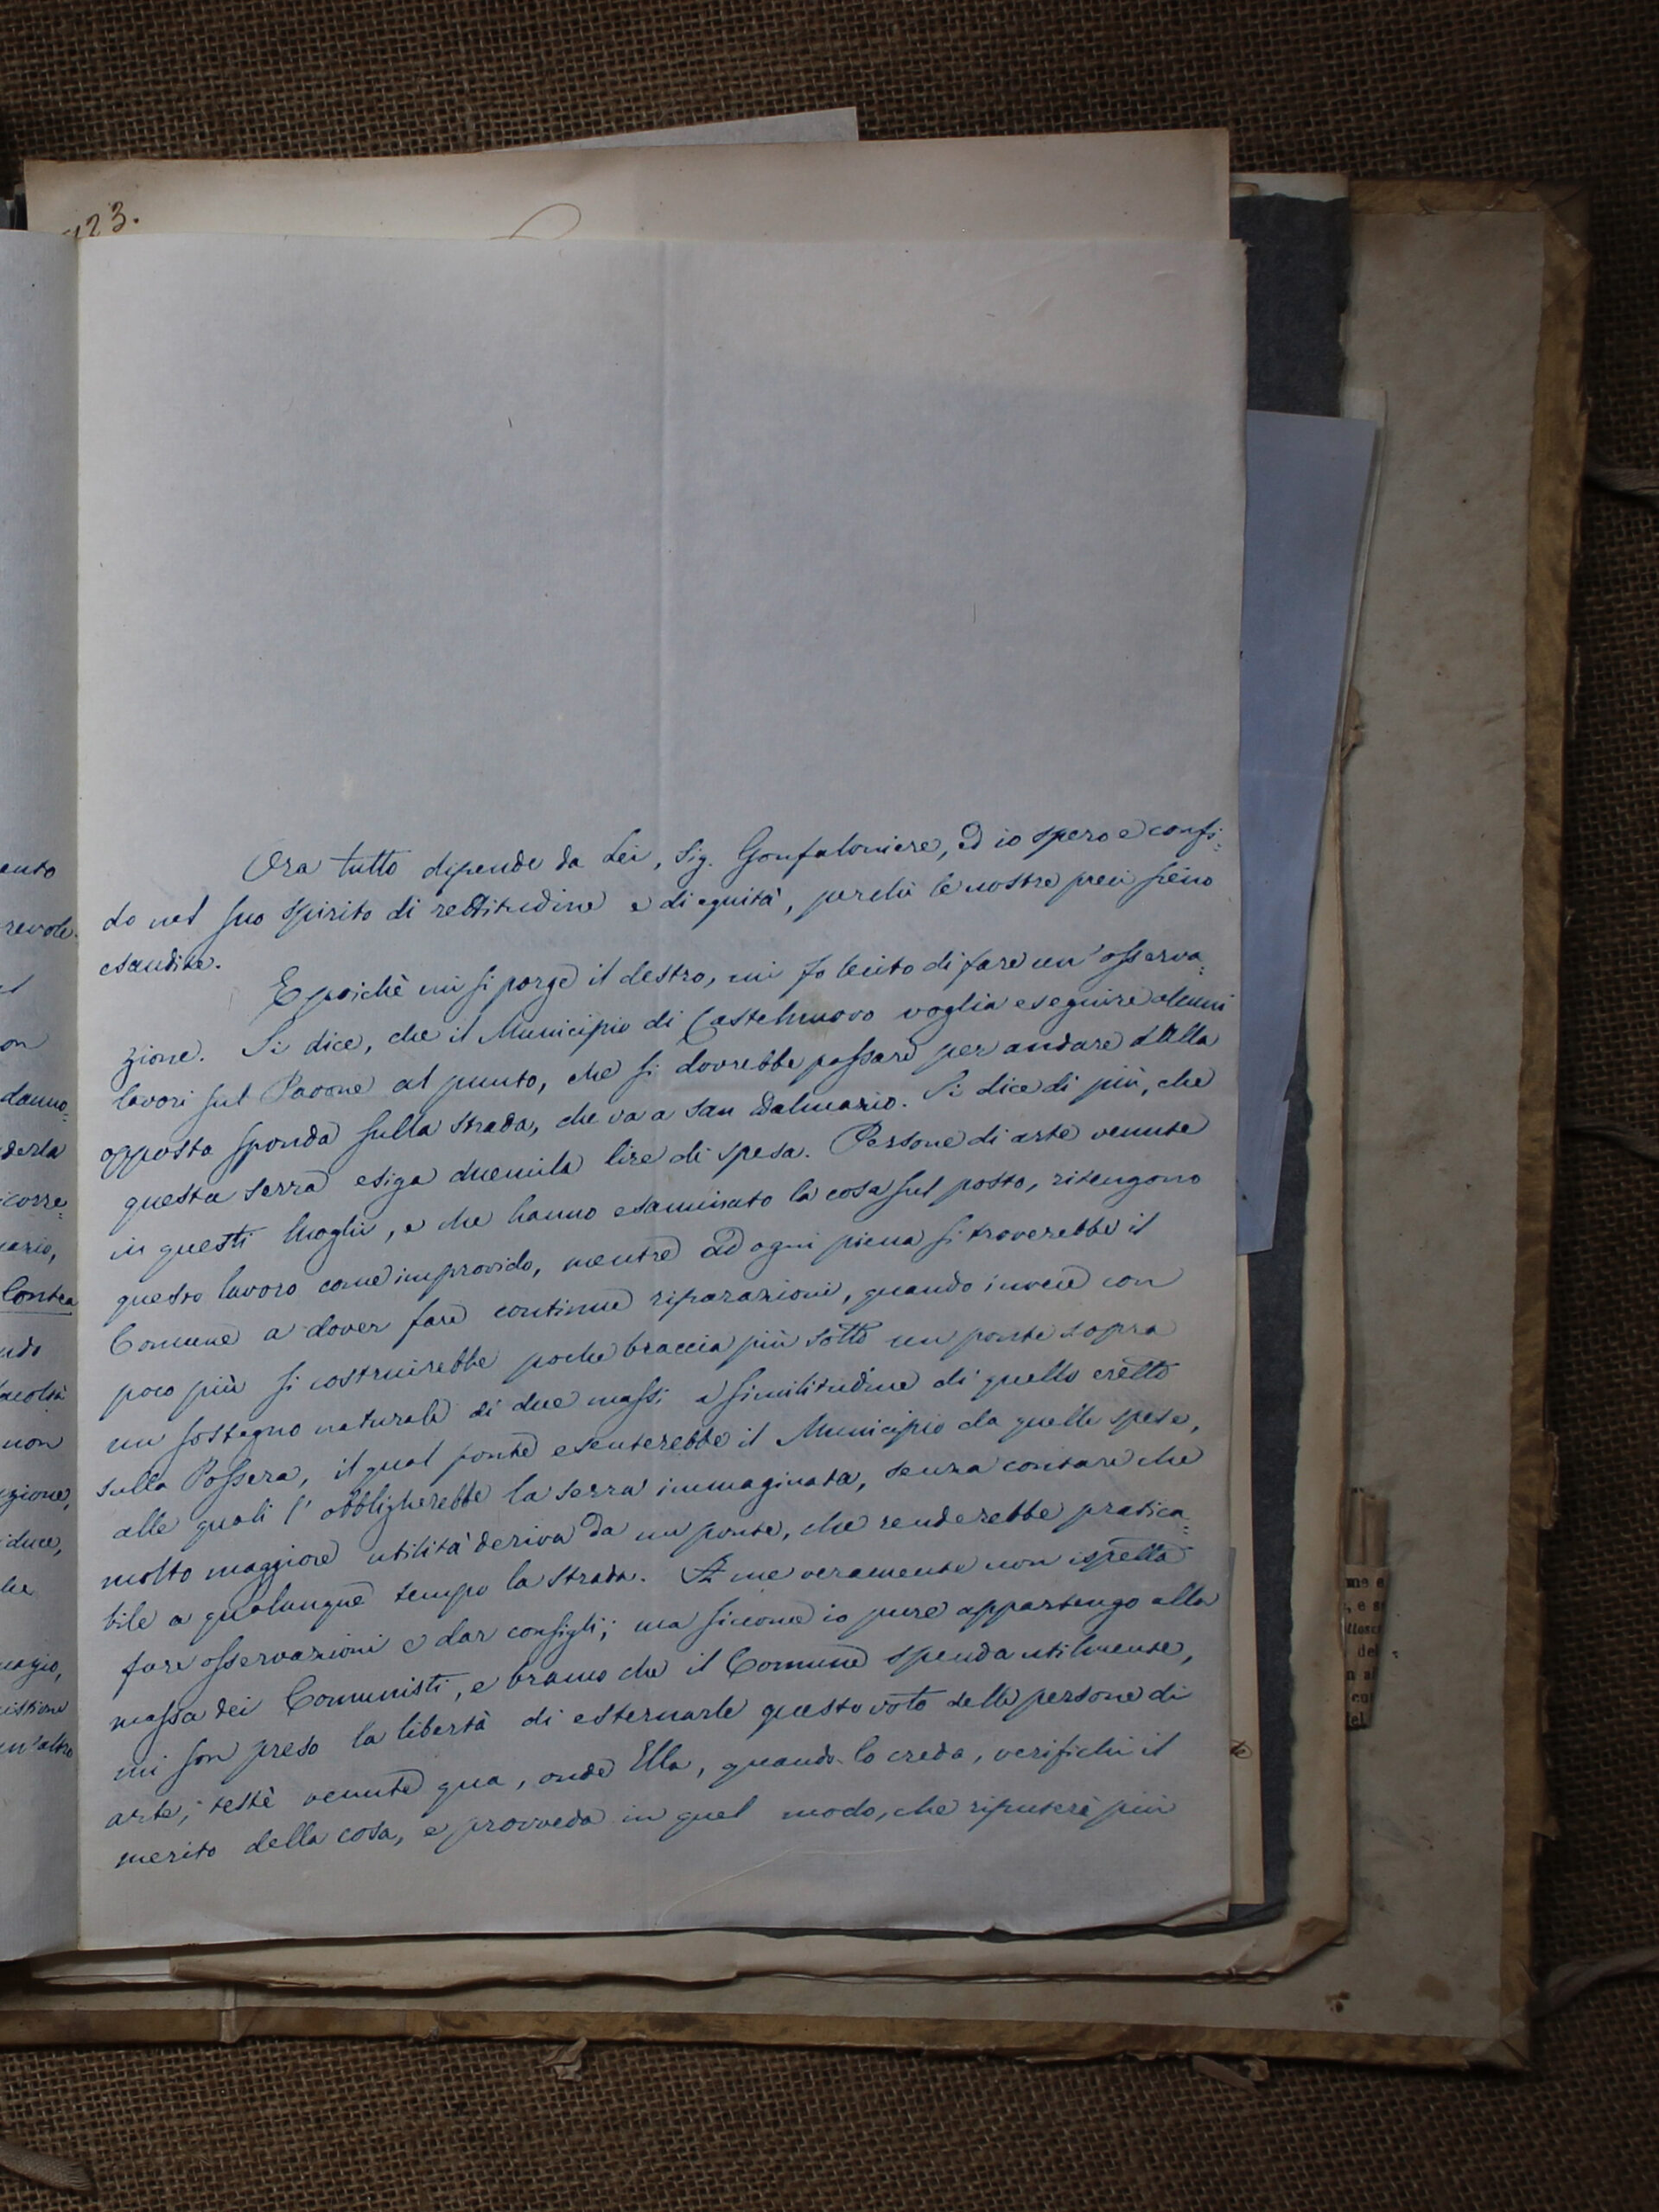 123.
Ora tutto dipende da Lei, Sig. Gonfaloniere, ed io spero e confi:
do nel suo spirito di rettitudine e di equità, perchè le nostre preci sieno
esaudite.
E poichè mi si porge il destro, mi fo lecito di fare un' osserva:
zione. Si dice, che il Municipio di Castelnuovo voglia eseguire alcuni
lavori sul Pavone al punto, che si dovrebbe passare per andare alla
opposta sponda sulla strada, che va a San Dalmazio. Si dice di più, che
questa serra esiga duemila lire di spesa. Persone di arte venute
in questi luoghi, e che hanno esaminato la cosa sul posto, ritengono
questo lavoro come improvido, mentre ad ogni piena si troverebbe il
Comune a dover fare continue riparazioni, quando invece con
poco più si costruirebbe poche braccia più sotto un ponte sopra
un sostegno naturale di due massi a similitudine di quello eretto
sulla Possera, il qual ponte esenterebbe il Municipio da quelle spese,
alle quali l' obbligherebbe la serra immaginata, senza contare che
molto maggiore utilità deriva da un ponte, che renderebbe pratica:
bile a qualunque tempo la strada. A me veramente non ispetta
fare osservazioni e dar consigli; ma siccome io pure appartengo alla
massa dei Comunisti, e bramo che il Comune spenda utilmente,
mi son preso la libertà di esternarle questo voto delle persone di
arte, testè venute qua, onde Ella, quando lo creda, verifichi il
merito della cosa, e provveda in quel modo, che riputerà più